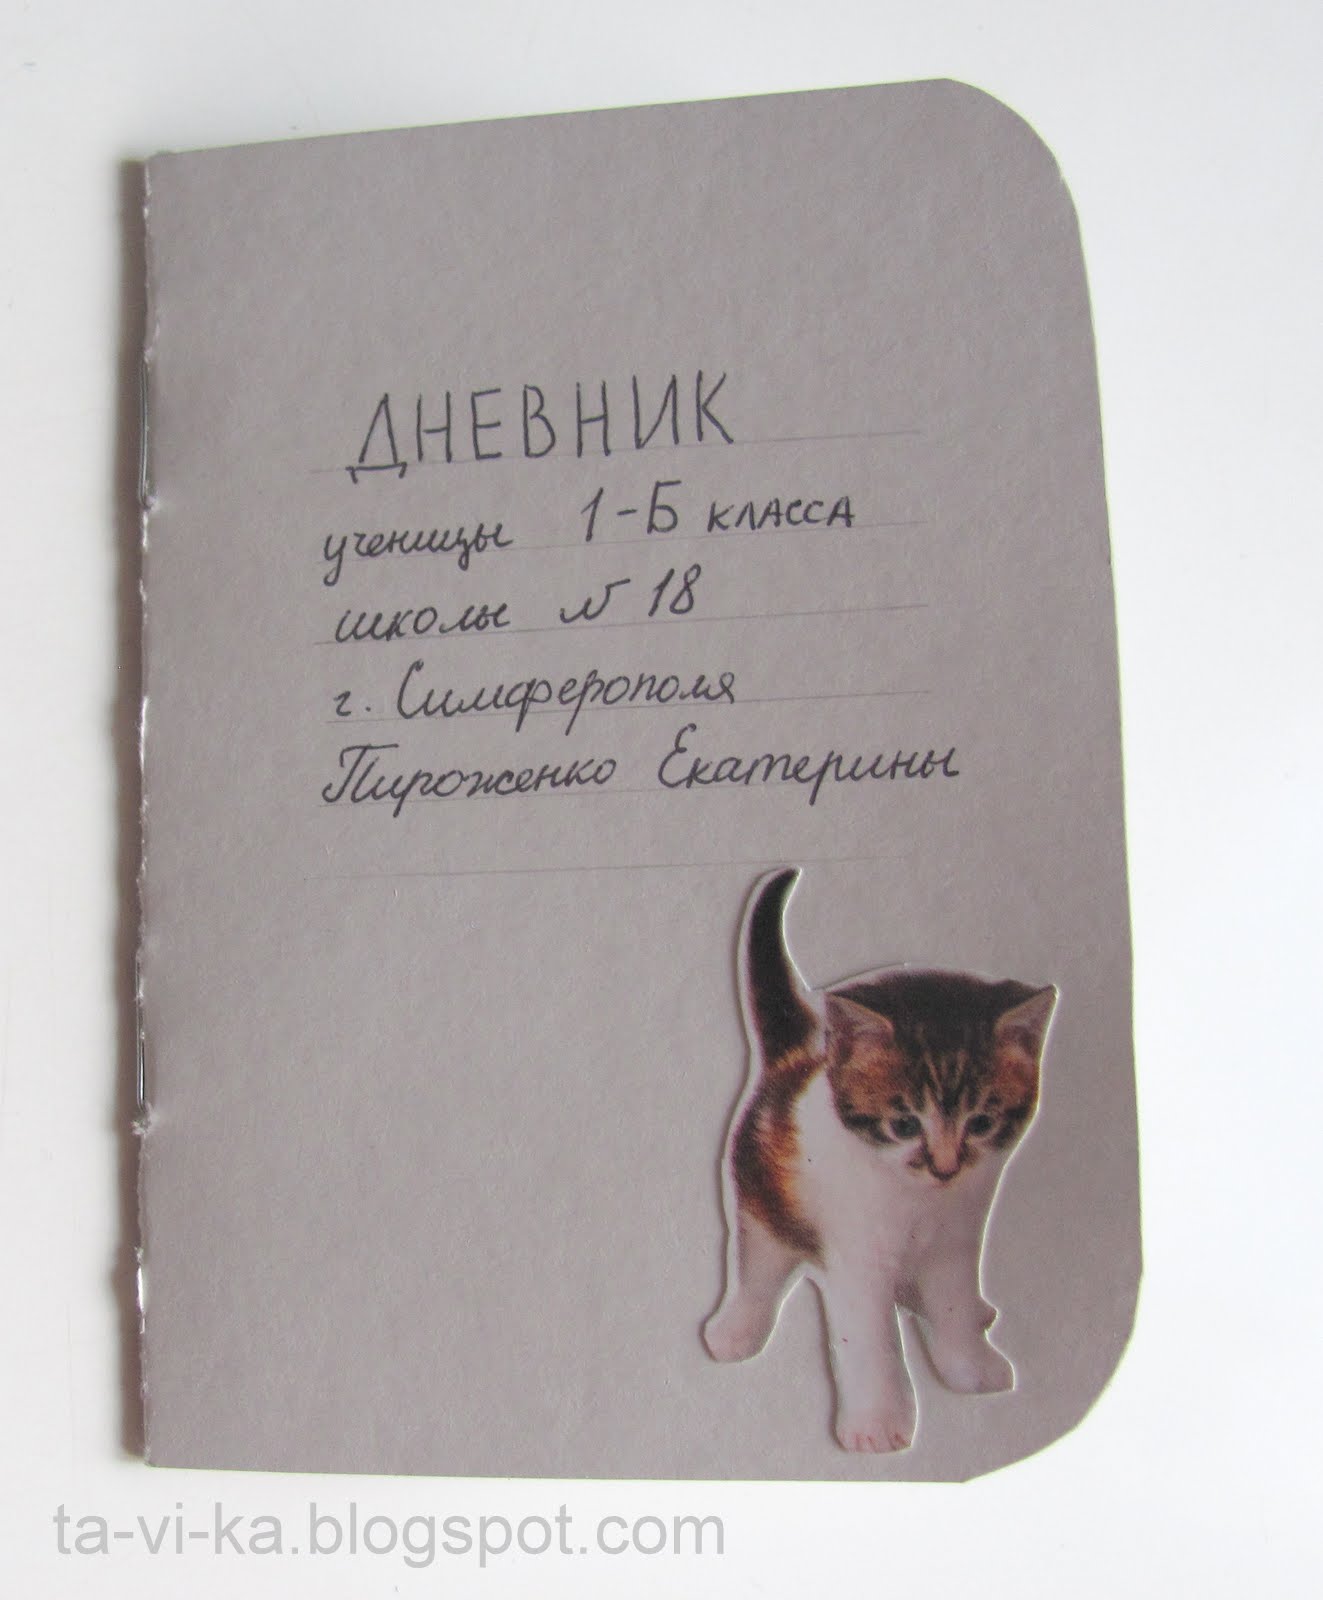 ДНЕВНИК
ученицы 1-Б класса
школы № 18
г. Симферополя
Пироженко Екатерины
ta-vi-ka.blogspot.com